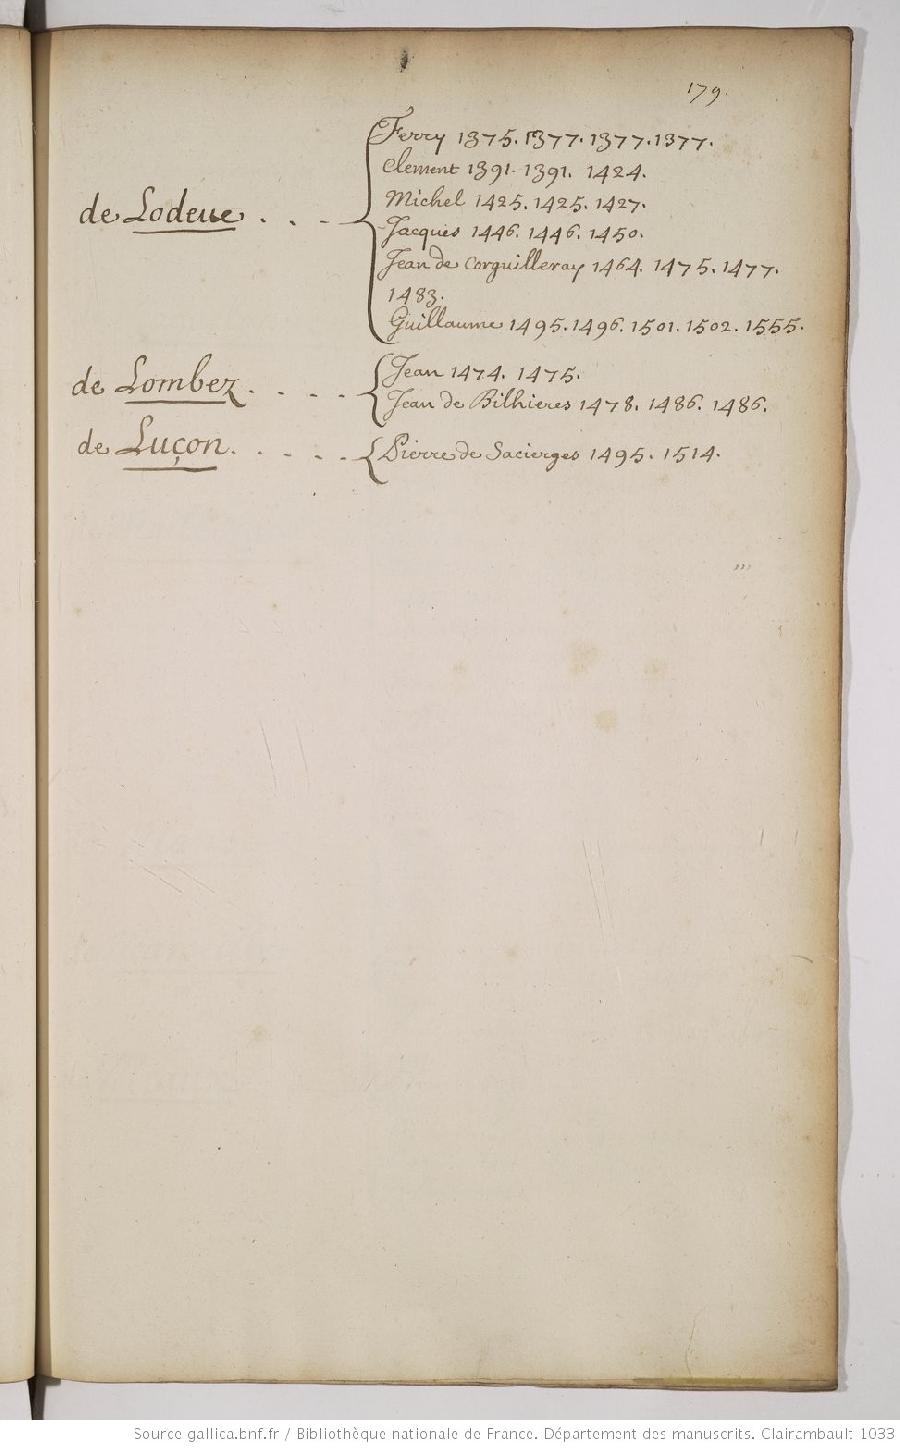 179.
de Lodeue . . . .
Ferry 1375. 1377. 1377. 1377.
Clement 1391. 1391. 1424.
Michel 1425. 1425. 1427.
Jacques 1446. 1446. 1450.
Jean de Corguilleray 1464. 1475. 1477.
1483.
Guillaume 1495. 1496. 1501. 1502. 1555.
de Lombez . . . .
Jean 1474. 1475.
Jean de Bilhieres 1478. 1486. 1486.
de Luçon . . . . .
Pierre de Sacierges 1495. 1514.
Source gallica.bnf.fr / Bibliothèque nationale de France. Département des manuscrits. Clairambault 1033